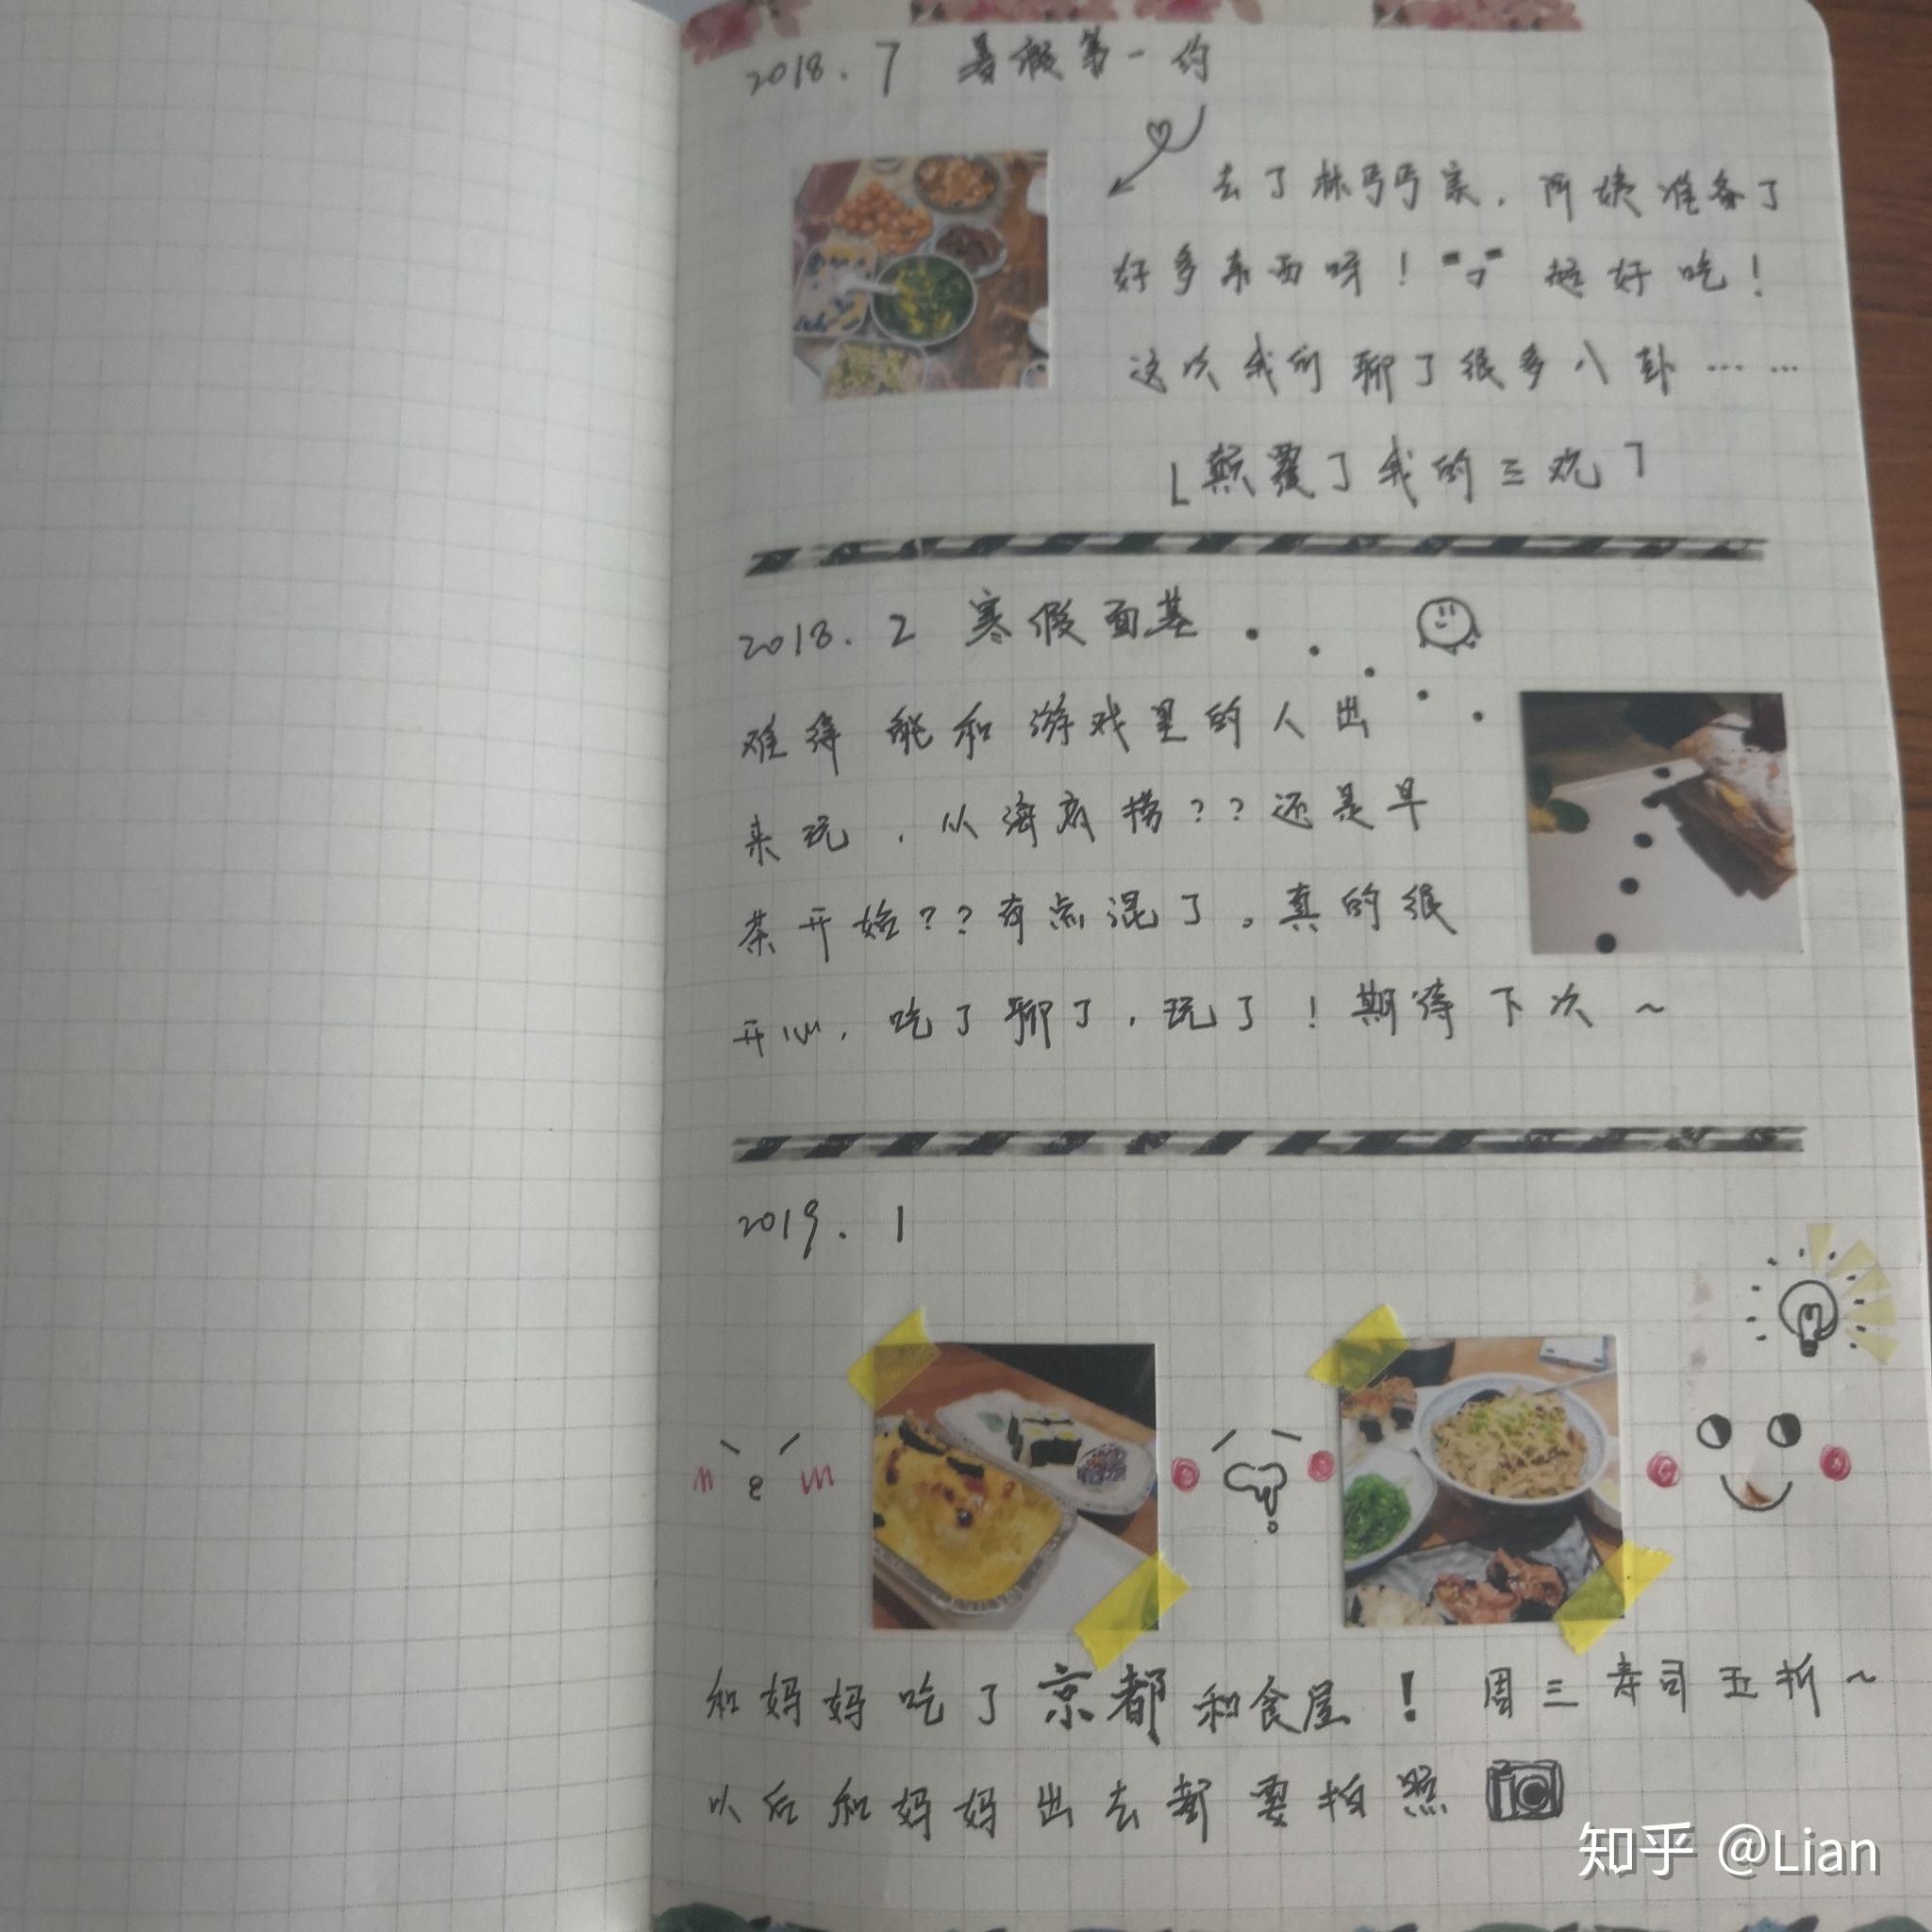 2018.7 暑假第一约
去了林丐丐家,阿姨准备了
好多东西呀! 超好吃!
这次我们聊了很多八卦……
「颠覆了我的三观」
2018.2 寒假面基
难得能和游戏里的人出
来玩,从海底捞??还是早
茶开始??有点混了。真的很
开心,吃了聊了,玩了!期待下次~
2019.1
和妈妈吃了京都和食屋!周三寿司五折~
以后和妈妈出去都要拍照
知乎 @Lian